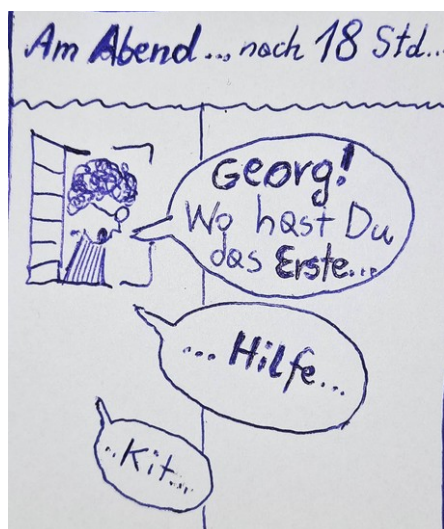 Am Abend... nach 18 Std...
Georg!
Wo hast Du
das Erste...
... Hilfe...
..Kit...